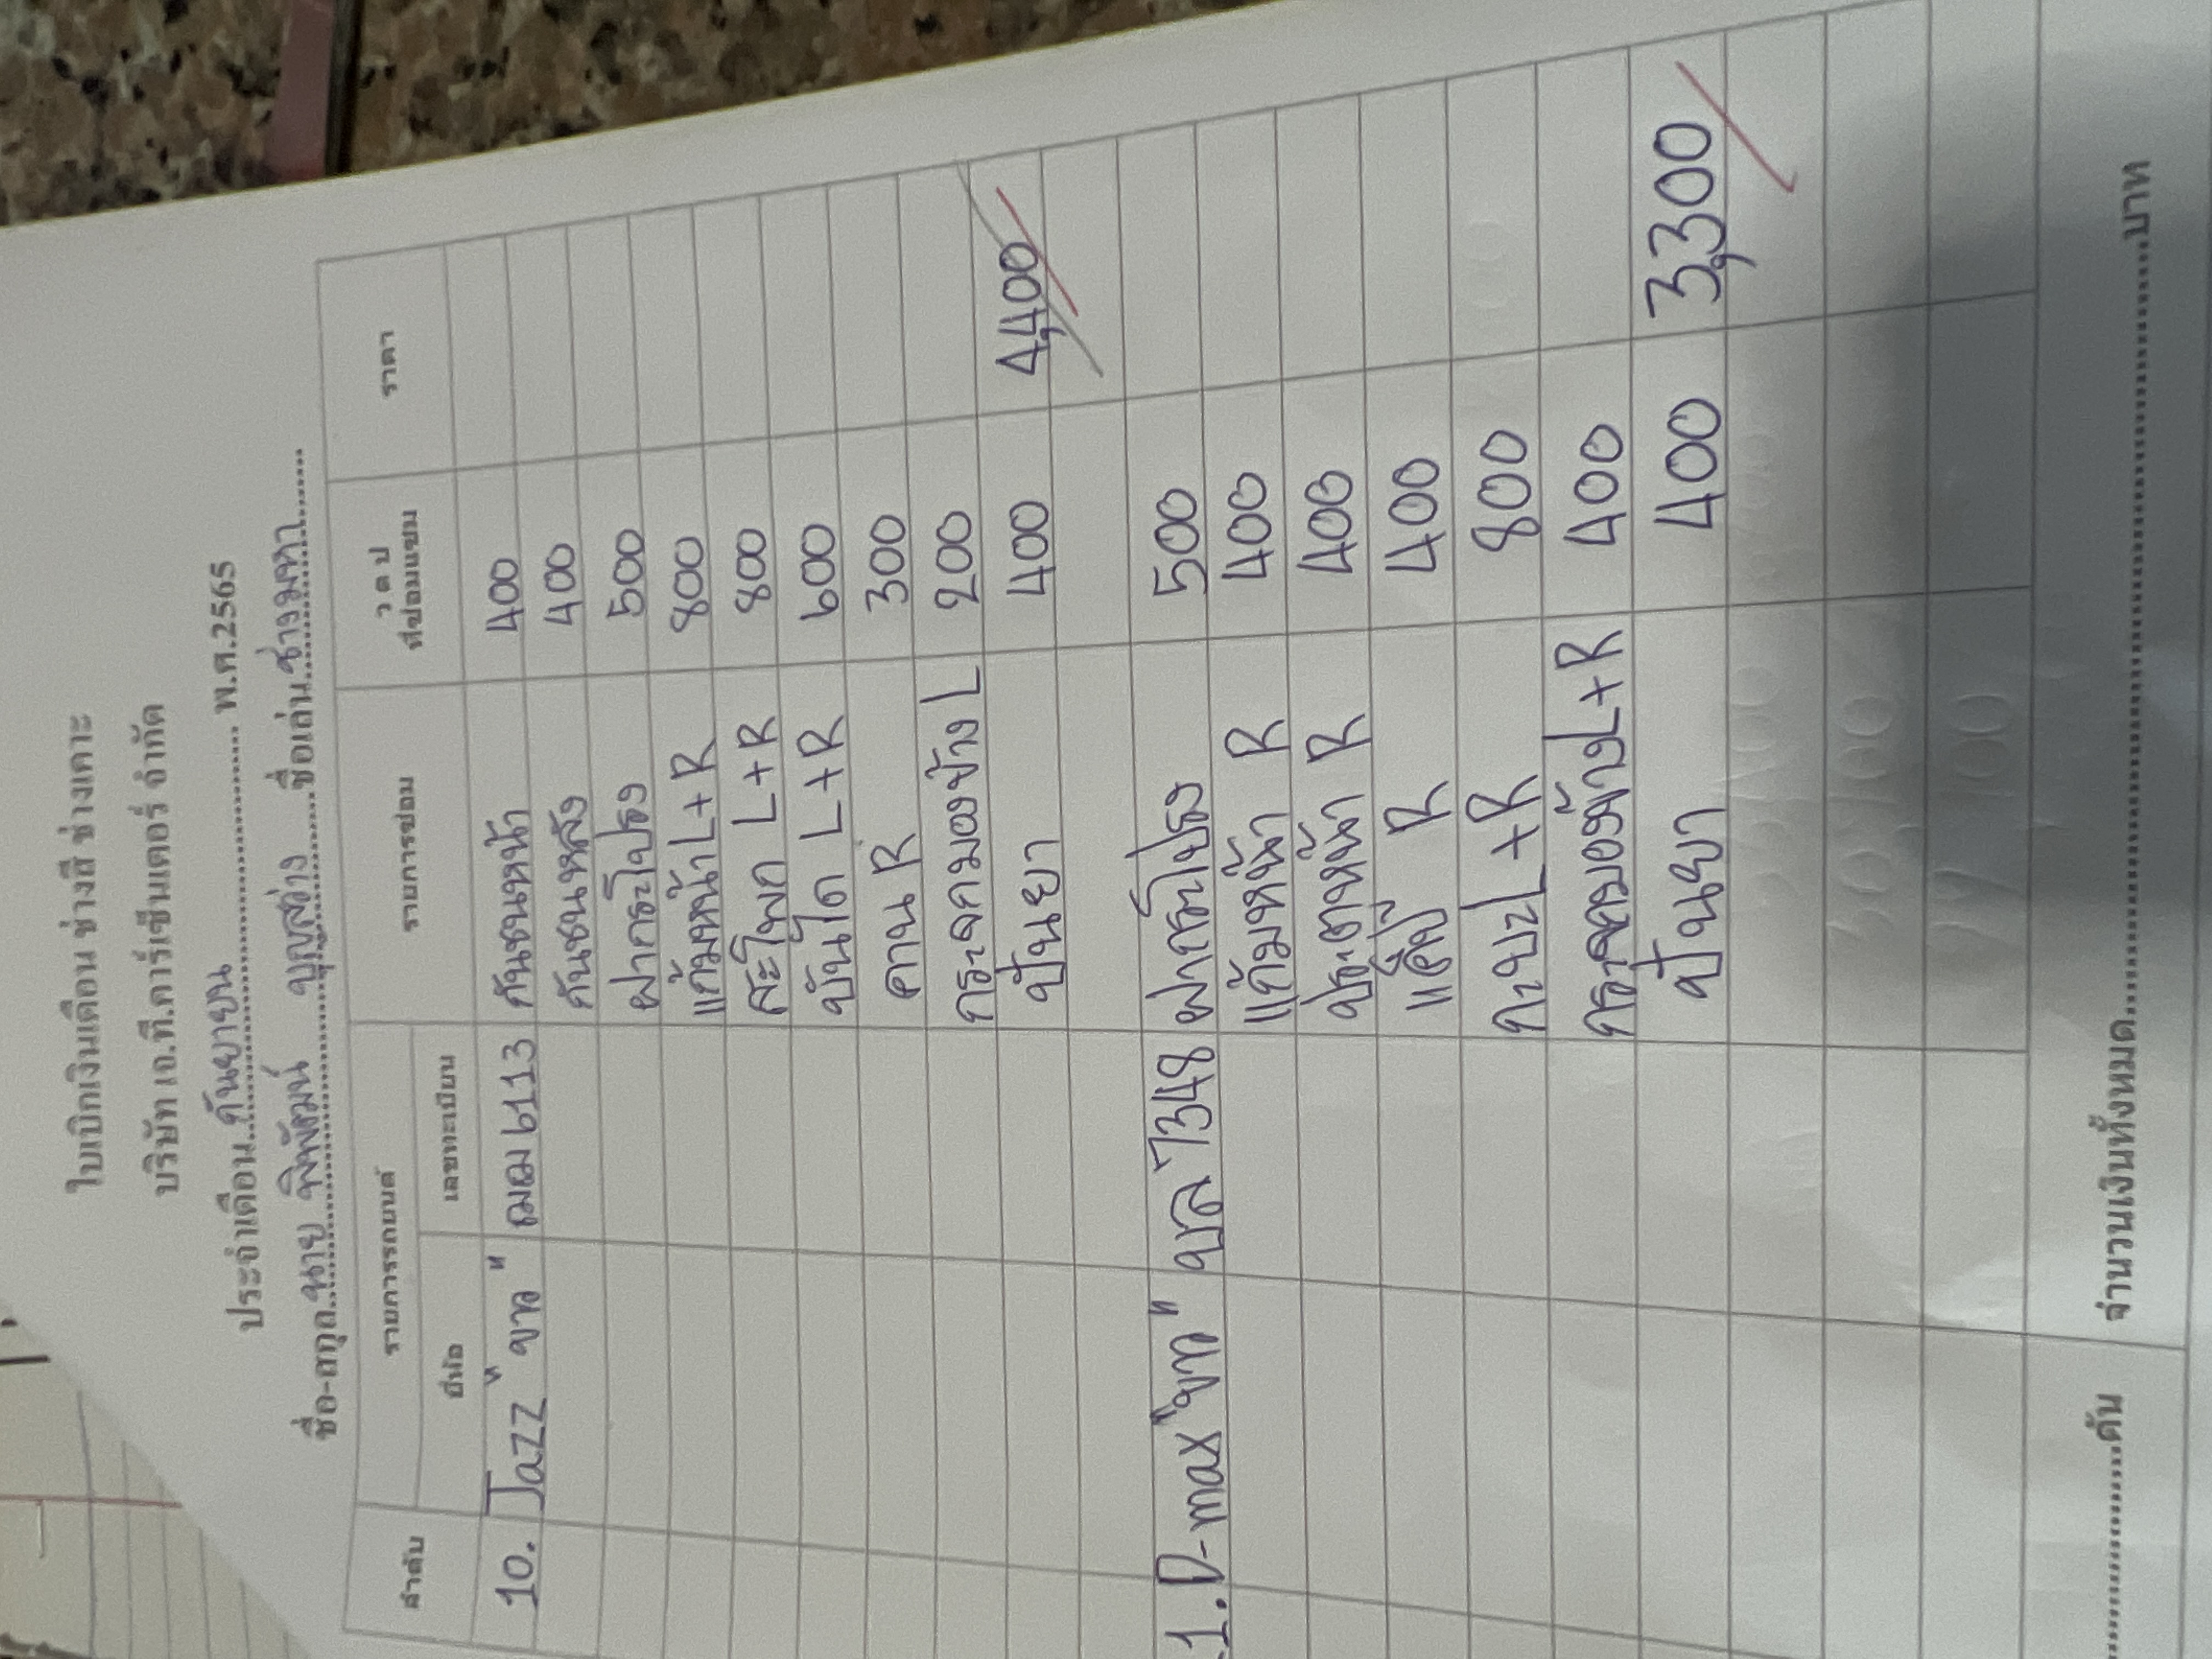 ใบเบิกเงินเดือน ช่างสี ช่างเคาะ
บริษัท เอ.ที.คาร์เซ็นเตอร์ จำกัด
ประจำเดือน กันยายน พ.ศ.2565
ชื่อ-สกุล นาย พิพัฒน์ บุญสว่าง ชื่อเล่น ช่างมหา
ลำดับ รายการรถยนต์ รายการซ่อม ว ด ป ที่ซ่อมแซม ราคา
ยี่ห้อ เลขทะเบียน
10. Jazz "ขาว" ฌฌ 6113 กันชนหน้า 400
กันชนหลัง 400
ฝากระโปรง 500
แก้มหน้า L+R 800
สะโพก L+R 800
บันได L+R 600
คาน R 300
กระจกมองข้าง L 200
ปั่นยา 400 4,400
1. D-max "ขาว" บล 7348 ฝากระโปรง 500
แก้มหน้า R 400
ประตูหน้า R 400
แค็ป R 400
กะบะ L+R 800
กระจกมองข้าง L+R 400
ปั่นยา 400 3,300
คัน จำนวนเงินทั้งหมด บาท